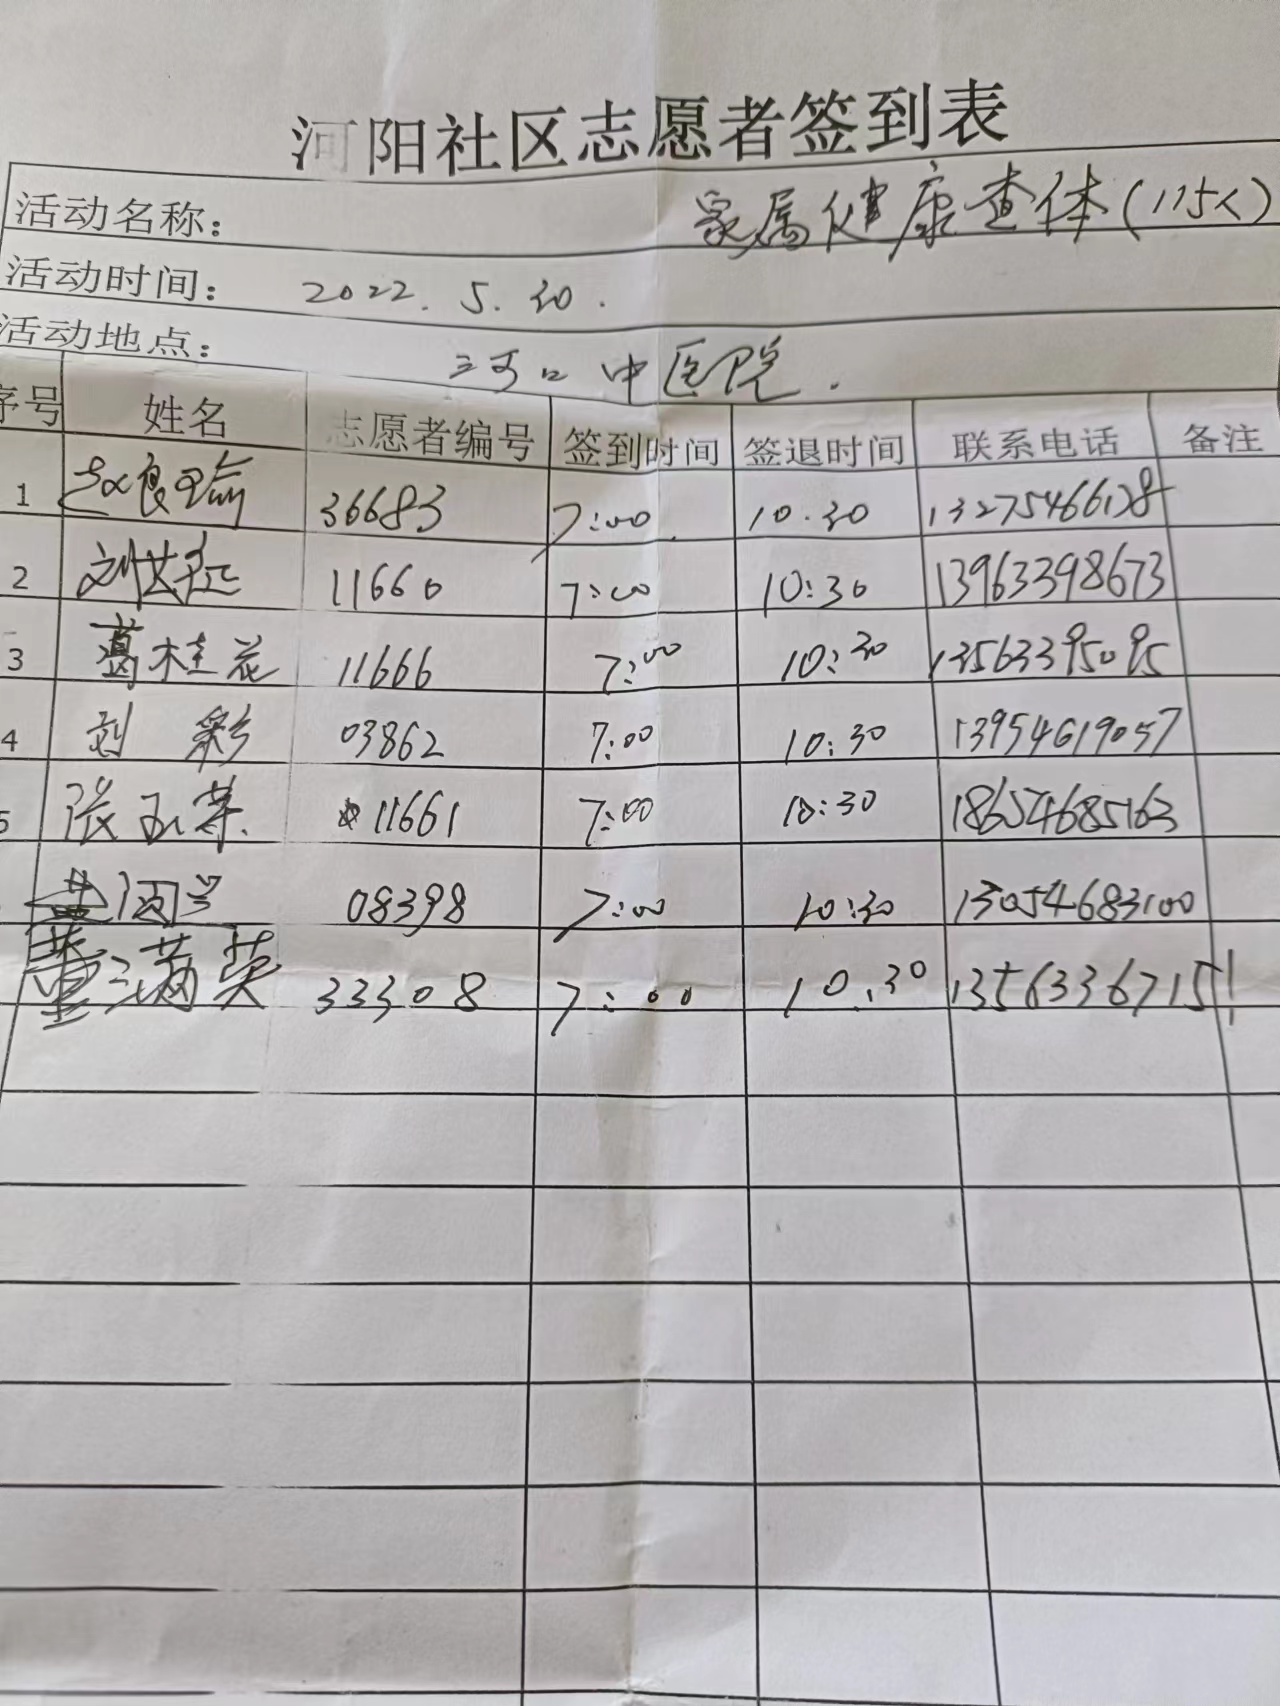 河阳社区志愿者签到表
活动名称： 家属健康查体(115人)
活动时间： 2022.5.30.
活动地点： 河口中医院.
序号 姓名 志愿者编号 签到时间 签退时间 联系电话 备注
1 赵良 36683 7:00 10.30 13275466128
2 刘 11660 7:00 10:30 13963398673
3 葛桂花 11666 7:00 10:30 13563395095
4 刘彩 03862 7:00 10:30 13954619057
5 张玉荣 11661 7:00 10:30 18654685163
08398 7:00 10:30 13054683100
董满英 33308 7:00 10:30 13563367151